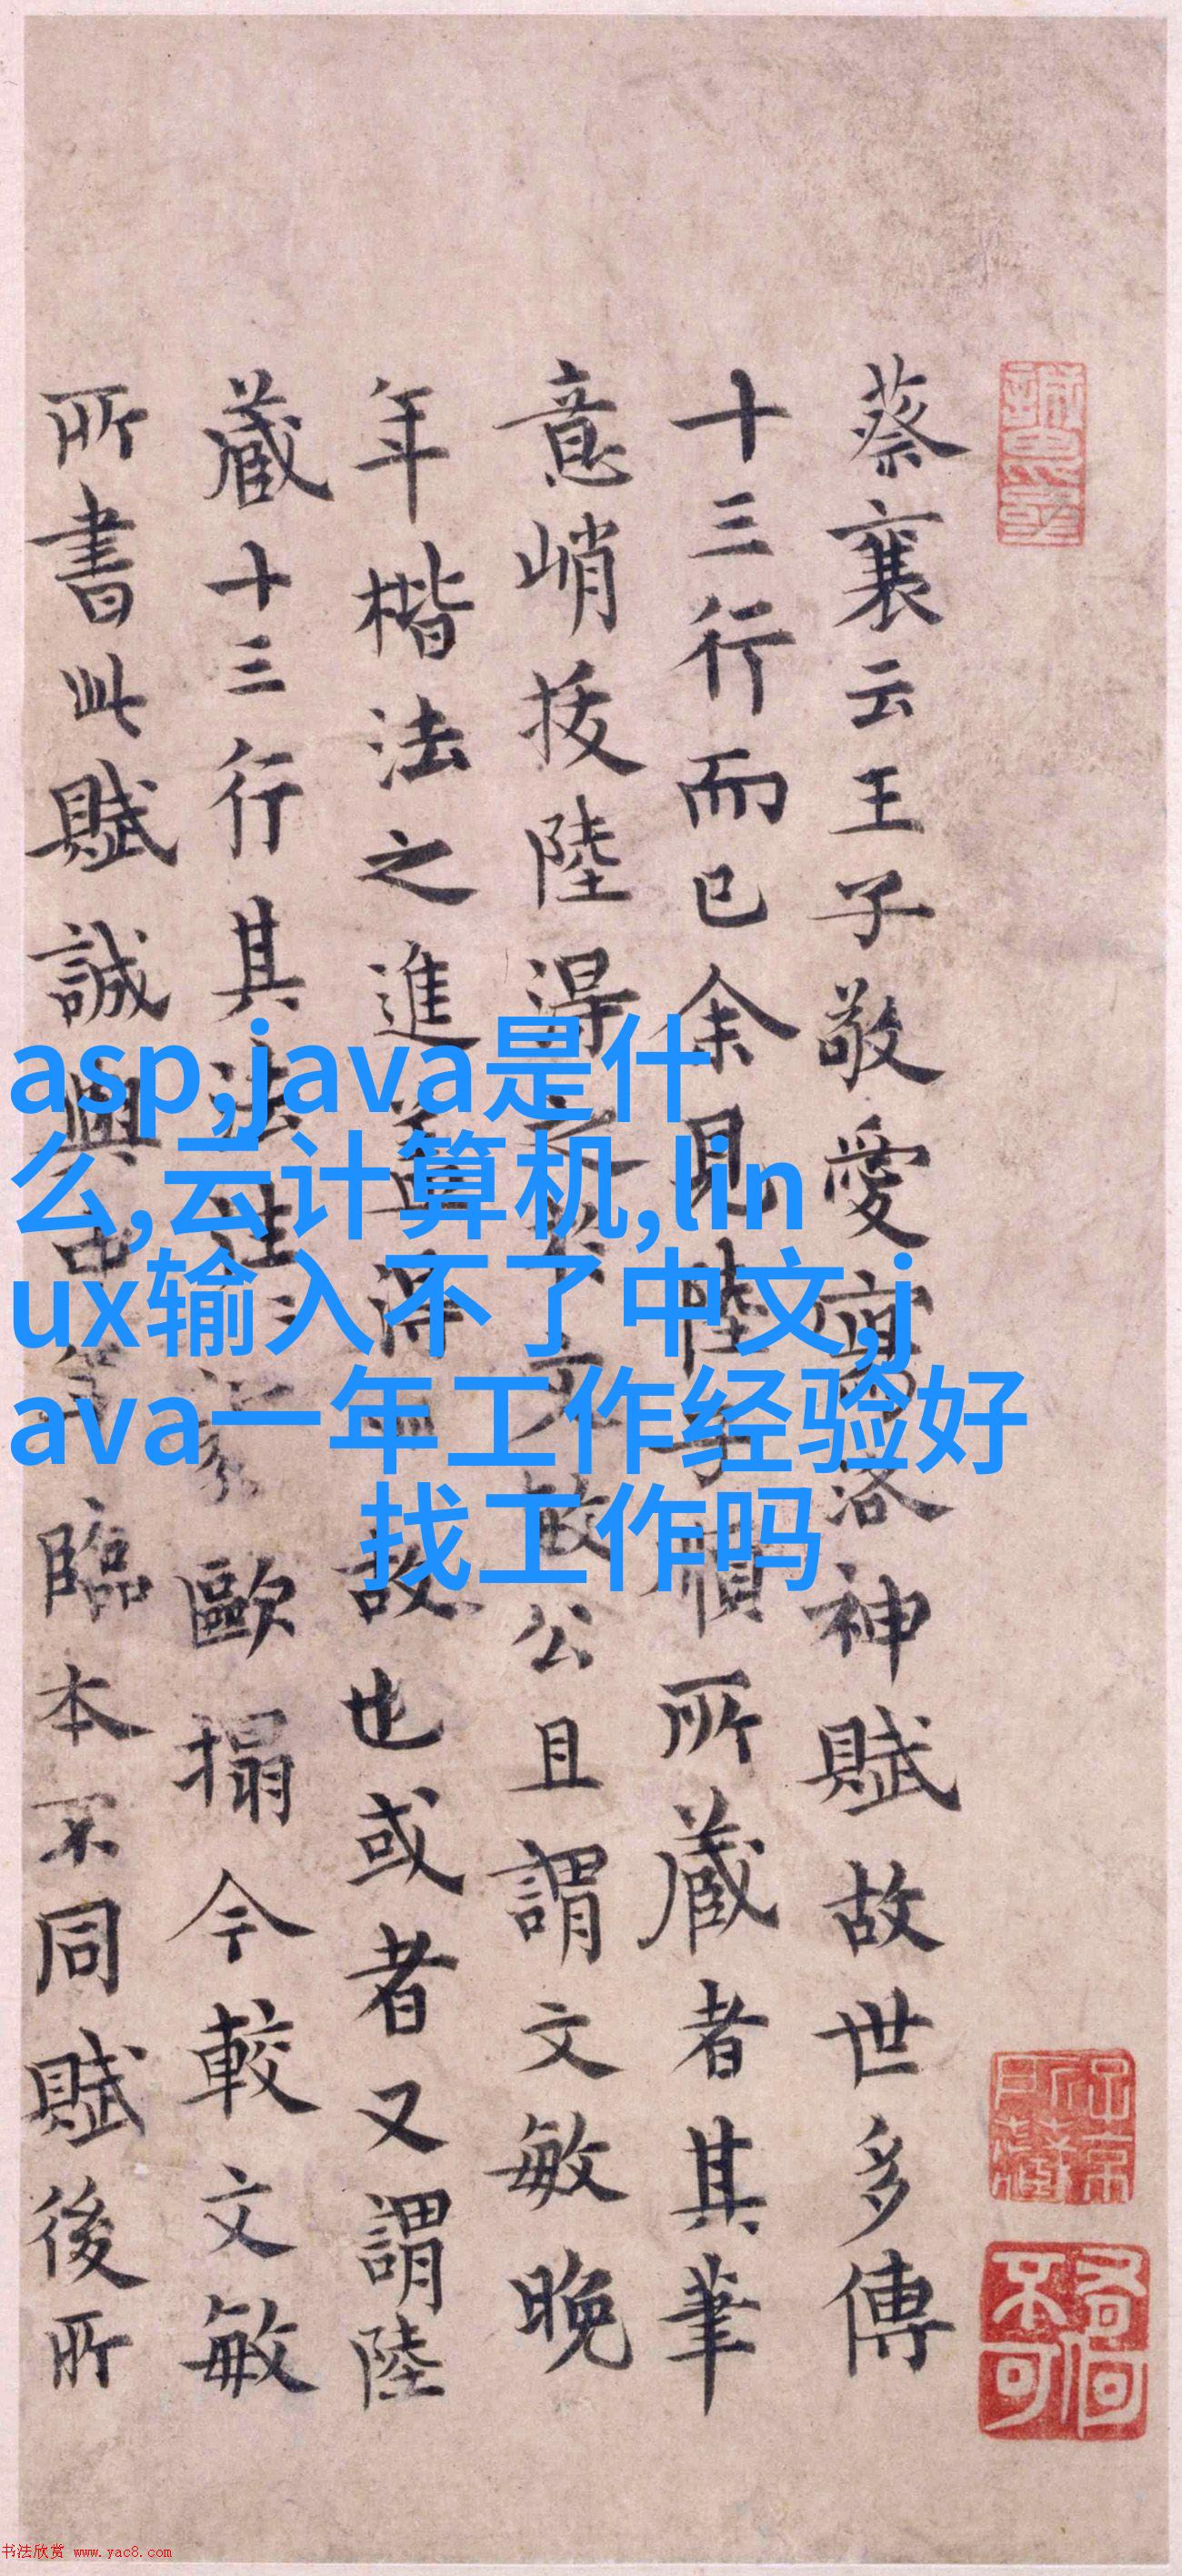 蔡襄云王子敬愛寫洛神賦故世多傳
十三行而已余見陸子順所藏者其筆
意峭拔陸得之文敏公且謂文敏晚
年楷法之進蓋得故也或者又謂陸
藏十三行其法歐搨今較文敏
所書此賦誠與臨本不同賦後所
asp,java是什
么,云计算机,lin
ux输入不了中文,j
ava一年工作经验好
找工作吗
书法欣赏 www.yac8.com